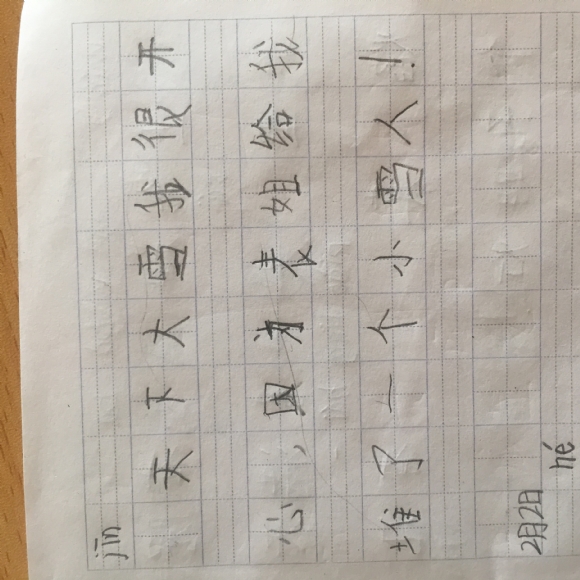 jīn
天下大雪我很开
心,因为表姐给我
堆了一个小雪人!
2月2日
hé